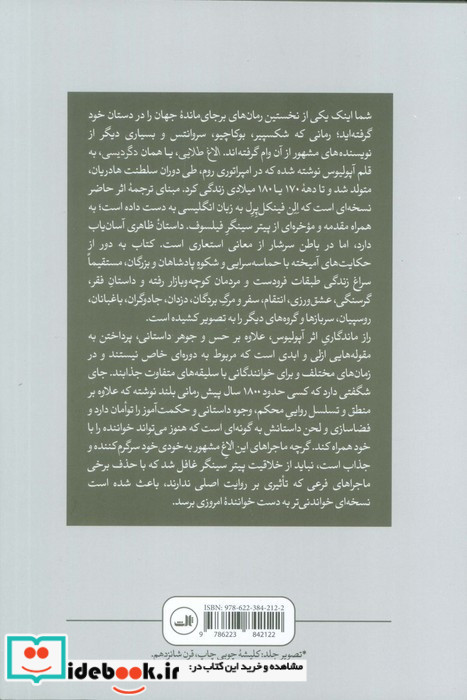 شما اینک یکی از نخستین رمان‌های برجای‌ماندهٔ جهان را در دستان خود
گرفته‌اید؛ رمانی که شکسپیر، بوکاچیو، سروانتس و بسیاری دیگر از
نویسنده‌های مشهور از آن وام گرفته‌اند. الاغ طلایی، یا همان دگردیسی، به
قلم آپولیوس نوشته شده که در امپراتوری روم، طی دوران سلطنت هادریان،
متولد شد و تا دههٔ ۱۷۰ یا ۱۸۰ میلادی زندگی کرد. مبنای ترجمهٔ اثر حاضر
نسخه‌ای است که اِلن فینکل‌پِرل به زبان انگلیسی به دست داده است؛ به
همراه مقدمه و مؤخره‌ای از پیتر سینگرِ فیلسوف. داستانْ ظاهری آسان‌یاب
دارد، اما در باطن سرشار از معانی استعاری است. کتاب به دور از
حکایت‌های آمیخته با حماسه‌سرایی و شکوهِ پادشاهان و بزرگان، مستقیماً
سراغ زندگی طبقات فرودست و مردمان کوچه‌وبازار رفته و داستانِ فقر،
گرسنگی، عشق‌ورزی، انتقام، سفر و مرگِ بردگان، دزدان، جادوگران، باغبانان،
روسپیان، سربازها و گروه‌های دیگر را به تصویر کشیده است.
راز ماندگاریِ اثر آپولیوس، علاوه بر حس و جوهر داستانی، پرداختن به
مقوله‌هایی ازلی و ابدی است که مربوط به دوره‌ای خاص نیستند و در
زمان‌های مختلف و برای خوانندگانی با سلیقه‌های متفاوت جذابند. جای
شگفتی دارد که کسی حدود ۱۸۰۰ سال پیش رمانی بلند نوشته که علاوه بر
منطق و تسلسل رواییِ محکم، وجوه داستانی و حکمت‌آموز را توأمان دارد و
فضاسازی و لحن داستانش به گونه‌ای است که هنوز می‌تواند خواننده را با
خود همراه کند. گرچه ماجراهای این الاغ مشهور به‌خودی‌خود سرگرم‌کننده و
جذاب است، نباید از خلاقیت پیتر سینگر غافل شد که با حذف برخی
ماجراهای فرعی که تأثیری بر روایت اصلی ندارند، باعث شده است
نسخه‌ای خواندنی‌تر به دست خوانندهٔ امروزی برسد.
ISBN: 978-622-384-212-2
9 786223 842122
ثالث
*تصویر جلد: کلیشهٔ چوبی چاپ، قرن شانزدهم.
iiidebook.ir
مشاهده و خرید این کتاب در: